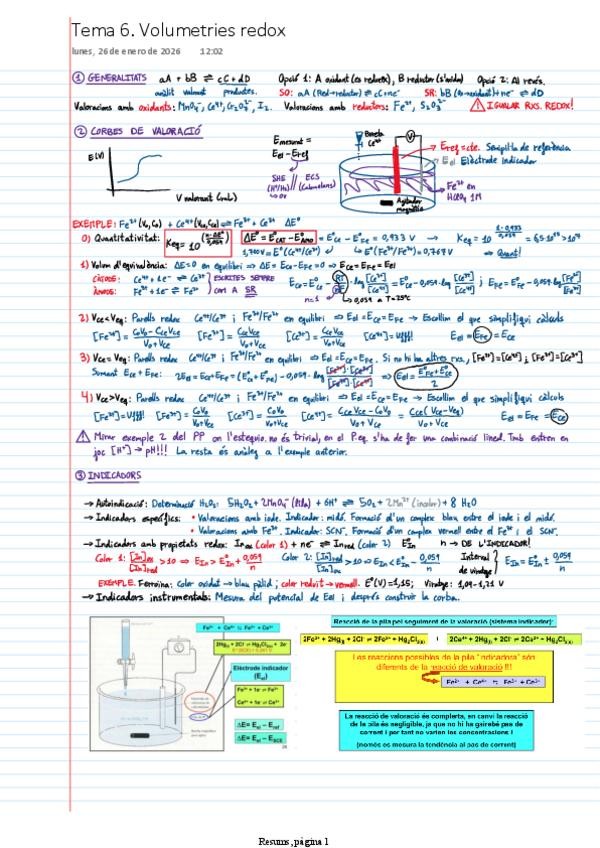 Tema 6. Volumetries redox
lunes, 26 de enero de 2026 12:02
① GENERALITATS aA + bB ⇌ cC + dD Opció 1: A oxidant (es redueix), B reductor (s'oxida) Opció 2: Al revés.
analit valorant productes.
Valoracions amb oxidants: MnO₄⁻, Ce⁴⁺, Cr₂O₇²⁻, I₂. Valoracions amb reductors: Fe²⁺, S₂O₃²⁻ ⚠ IGUALAR RXS. REDOX!
② CORBES DE VALORACIÓ
E (V)
V valorant (mL)
Emesurat =
Eel - Eref
SHE
ECS
(Calomelans)
Bureta
Ce⁴⁺
V
Eref = cte. Semipila de referència
Eel Elèctrode indicador
Fe²⁺ en
HClO₄ 1M
Agitador
magnètic
EXEMPLE: Fe²⁺ (V₀, C₀) + Ce⁴⁺ (Vce, Cce) ⇌ Fe³⁺ + Ce³⁺ ΔE⁰
0) Quantitativitat:
ΔE⁰ = E⁰CAT - E⁰ANO = E⁰Ce - E⁰Fe = 0,933 V →
→ Quant!
1) Volum d'equivalència: ΔE=0 en equilibri ⇒ ΔE = ECe - EFe = 0 ⇒ ECe = EFe = Eel
CÀTODE: Ce⁴⁺ + 1e⁻ ⇌ Ce³⁺
ÀNODE: Fe³⁺ + 1e⁻ ⇌ Fe²⁺
ESCRITES SEMPRE
COM A SR
n=1
0,059 a T=25ºC
2) Vce < Veq: Parells redox Ce⁴⁺/Ce³⁺ i Fe³⁺/Fe²⁺ en equilibri ⇒ Eel = ECe = EFe → Escollim el que simplifiqui càlculs
[Fe²⁺] = (C₀V₀ - CceVce)/(V₀+Vce) [Fe³⁺] = CceVce/(V₀+Vce) [Ce³⁺] = CceVce/(V₀+Vce) [Ce⁴⁺] = Ufff! Eel = EFe = ECe
3) Vce = Veq: Parells redox Ce⁴⁺/Ce³⁺ i Fe³⁺/Fe²⁺ en equilibri ⇒ Eel = ECe = EFe. Si no hi ha altres rxs, [Fe²⁺] = [Ce⁴⁺] i [Fe³⁺] = [Ce³⁺]
Sumant ECe + EFe: 2Eel = ECe + EFe = (E⁰Ce + E⁰Fe) - 0,059 · log [Fe²⁺]·[Ce³⁺]/[Fe³⁺]·[Ce⁴⁺] ⇒ Eel = (E⁰Fe + E⁰Ce)/2
4) Vce > Veq: Parells redox Ce⁴⁺/Ce³⁺ i Fe³⁺/Fe²⁺ en equilibri ⇒ Eel = ECe = EFe → Escollim el que simplifiqui càlculs
[Fe²⁺] = Ufff! [Fe³⁺] = C₀V₀/(V₀+Vce) [Ce³⁺] = C₀V₀/(V₀+Vce) [Ce⁴⁺] = (CceVce - C₀V₀)/(V₀+Vce) = Cce(Vce - Veq)/(V₀+Vce) Eel = EFe = ECe
⚠ Mirar exemple 2 del PP on l'estequio. no és trivial, en el P.eq. s'ha de fer una combinació lineal. Tmb entren en
joc [H⁺] → pH!!! La resta és anàleg a l'exemple anterior.
③ INDICADORS
→ Autoindicació: Determinació H₂O₂: 5H₂O₂ + 2MnO₄⁻ (lila) + 6H⁺ ⇌ 5O₂ + 2Mn²⁺ (incolor) + 8 H₂O
→ Indicadors específics: • Valoracions amb iode. Indicador: midó. Formació d'un complex blau entre el iode i el midó.
Valoracions amb Fe³⁺. Indicador: SCN⁻. Formació d'un complex vermell entre el Fe³⁺ i el SCN⁻
→ Indicadors amb propietats redox: Inox (color 1) + ne⁻ ⇌ Inred (color 2) E⁰In n → DE L'INDICADOR!
Color 1: [In]ox/[In]red > 10 ⇒ EIn > E⁰In + 0,059/n Color 2: [In]red/[In]ox > 10 ⇒ EIn < E⁰In - 0,059/n Interval de viratge } EIn = E⁰In ± 0,059/n
EXEMPLE. Ferroïna: Color oxidat → blau pàlid; color reduït → vermell. E⁰(V) = 1,15; Viratge: 1,09-1,21 V
→ Indicadors instrumentals: Mesura del potencial de Eel i després construir la corba.
Fe²⁺ + Ce⁴⁺ ⇆ Fe³⁺ + Ce³⁺
Elèctrode indicador
(Eel)
Fe³⁺ + 1e⁻ ⇌ Fe²⁺
Ce⁴⁺ + 1e⁻ ⇌ Ce³⁺
ΔE = Eel – Eref
ΔE = Eel – ESCE
Reacció de la pila pel seguiment de la valoració (sistema indicador):
2Fe³⁺ + 2Hg(l) + 2Cl⁻ ⇌ 2Fe²⁺ + Hg₂Cl₂(s) i 2Ce⁴⁺ + 2Hg(l) + 2Cl⁻ ⇌ 2Ce³⁺ + Hg₂Cl₂(s)
Las reaccions possibles de la pila "indicadora" són
diferents de la reacció de valoració !!!
Fe²⁺ + Ce⁴⁺ ⇆ Fe³⁺ + Ce³⁺
La reacció de valoració és completa, en canvi la reacció
de la pila és negligible, ja que no hi ha gairebé pas de
corrent i per tant no varien les concentracions !
(només es mesura la tendència al pas de corrent)
Resums, página 1